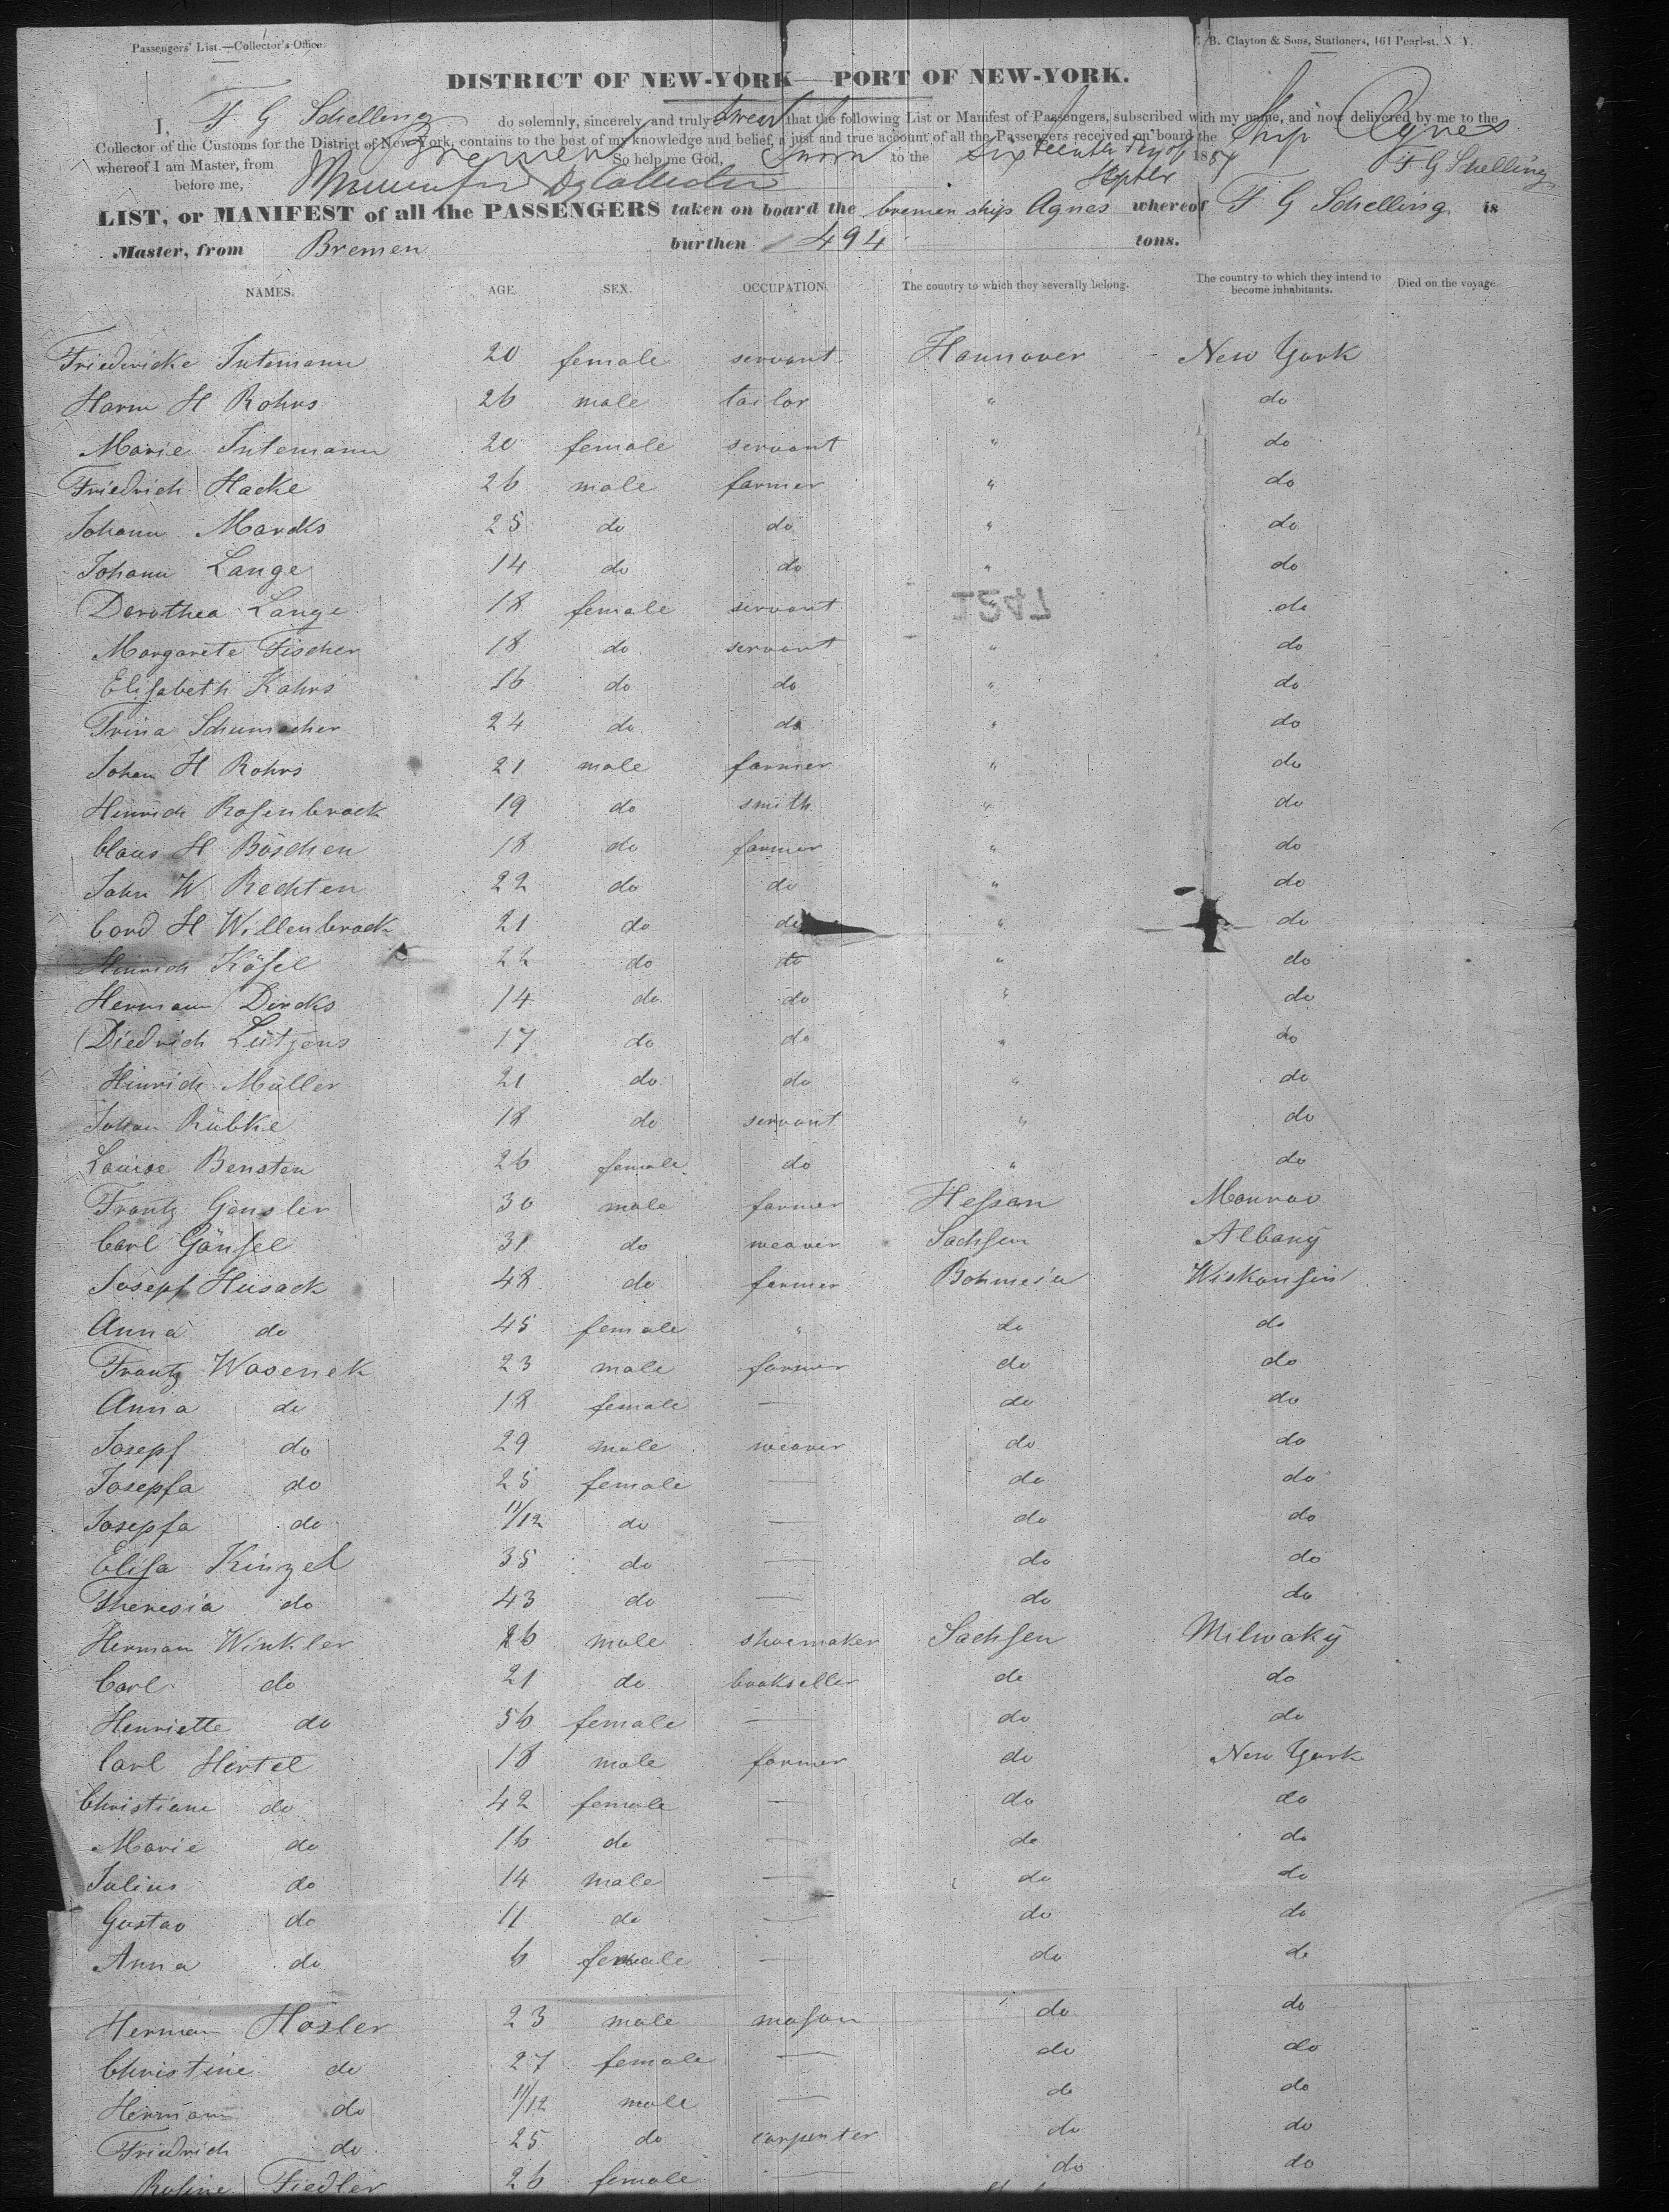 Passengers' List.—Collector's Office.
B. Clayton & Sons, Stationers, 161 Pearl-st. N. Y.
DISTRICT OF NEW-YORK—PORT OF NEW-YORK.
I, F G Schelling do solemnly, sincerely, and truly swear that the following List or Manifest of Passengers, subscribed with my name, and now delivered by me to the
Collector of the Customs for the District of New York, contains to the best of my knowledge and belief, a just and true account of all the Passengers received on board the Ship Agnes
whereof I am Master, from Bremen So help me God, Sworn to the Sixteenth day of Septbr 185 F G Schelling
before me,
LIST, or MANIFEST of all the PASSENGERS taken on board the bremen ship Agnes whereof F G Schelling is
Master, from Bremen burthen 494 tons.
NAMES. AGE. SEX. OCCUPATION. The country to which they severally belong. The country to which they intend to become inhabitants. Died on the voyage.
Friedericke Intemann 20 female servant Hannover New York
Harm H Rohrs 26 male tailor " do
Marie Intemann 20 female servant " do
Friedrich Hacke 26 male farmer " do
Johann Mardks 25 do do " do
Johann Lange 14 do do " do
Dorothea Lange 18 female servant do
1247
Margarete Fischer 18 do servant " do
Elisabeth Kahrs 16 do do " do
Trina Schumacher 24 do do " do
Johan H Rohrs 21 male farmer " do
Hinrich Rosenbrock 19 do smith " do
Claus H Böschen 18 do farmer " do
John W Rechten 22 do do " do
Cord H Willenbrock 21 do do " do
Hinrich Käsel 22 do do " do
Hermann Dircks 14 do do " do
Diedrich Lütjens 17 do do " do
Hinrich Müller 21 do do " do
Johan Rübke 18 do servant " do
Louise Bensten 26 female do " do
Frantz Gänsler 30 male farmer Hessan Monroo
Carl Gänsel 31 do weaver Sachsen Albany
Josepf Husack 48 do farmer Bohmein Wiskonsin
Anna do 45 female " do do
Frantz Wasenek 23 male farmer do do
Anna do 18 female — do do
Josepf do 29 male weaver do do
Josepfa do 25 female — do do
Josepfa do 11/12 do — do do
Elisa Kinzel 35 do — do do
Theresia do 43 do — do do
Herman Winkler 26 male shoemaker Sachsen Milwaky
Carl do 21 do bookseller do do
Henriette do 56 female — do do
Carl Hertel 18 male farmer do New York
Christiane do 42 female — do do
Marie do 16 do — do do
Julius do 14 male — do do
Gustav do 11 do — do do
Anna do 6 female — do do
Herman Hosler 23 male mason do do
Christine do 27 female — do do
Hermann do 11/12 male — do do
Friedrich do 25 do carpenter do do
Rosine Fiedler 26 female — do do